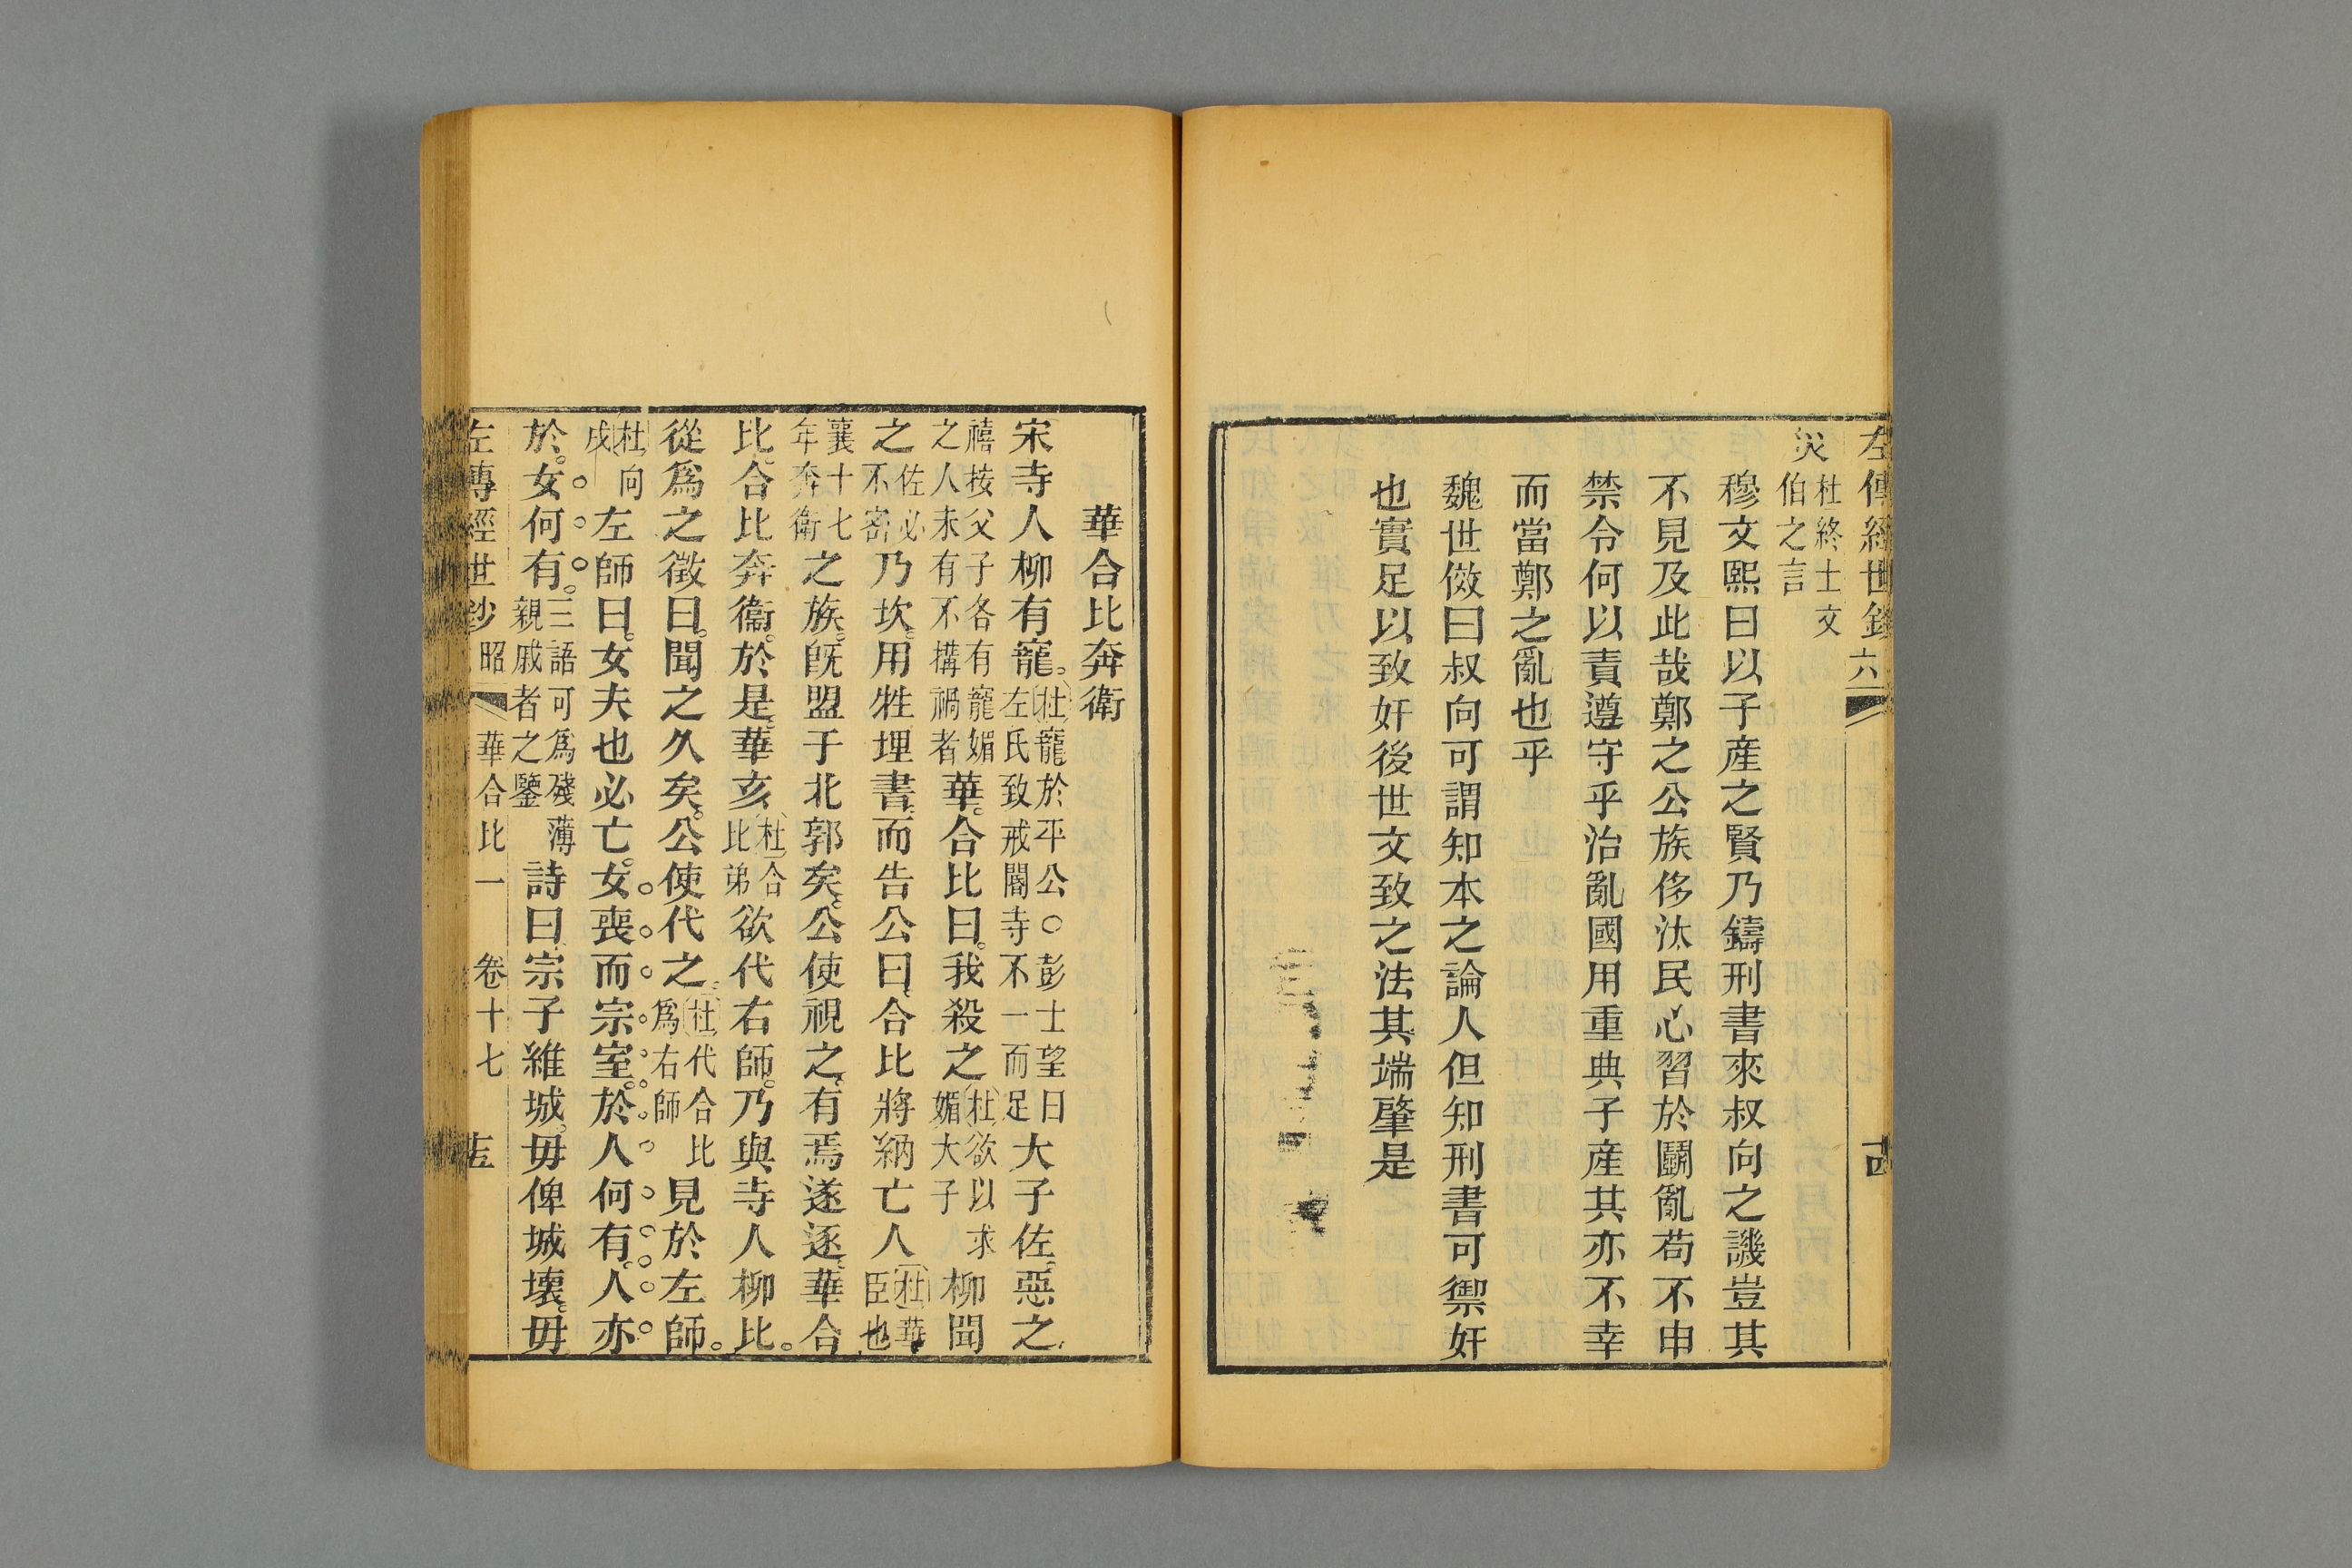 左傳經世鈔 六 十四
災杜終士文伯之言
穆文熙曰以子産之賢乃鑄刑書來叔向之譏豈其
不見及此哉鄭之公族侈汰民心習於鬭亂苟不申
禁令何以責遵守乎治亂國用重典子産其亦不幸
而當鄭之亂也乎
魏世傚曰叔向可謂知本之論人但知刑書可禦奸
也實足以致奸後世文致之法其端肇是
華合比奔衛
宋寺人柳有寵。杜寵於平公○彭士望曰左氏致戒閽寺不一而足大子佐惡之
禧按父子各有寵媚之人未有不搆禍者華合比曰。我殺之杜欲以求媚大子柳聞
之佐必不密乃坎。用牲埋書。而告公曰。合比將納亡人杜華臣也
襄十七年奔衛之族。旣盟于北郭矣。公使視之。有焉。遂逐華合
比。合比奔衞。於是。華亥杜合比弟欲代右師。乃與寺人柳比。
從爲之徵曰。聞之久矣。公使代之。杜代合比爲右師見於左師。
杜向戌左師曰。女夫也必亡。女喪而宗室。於人何有。人亦
於。女何有。三語可爲殘薄親戚者之鑒詩曰宗子維城。毋俾城壞。毋
左傳經世鈔 昭 華合比一 卷十七 十五